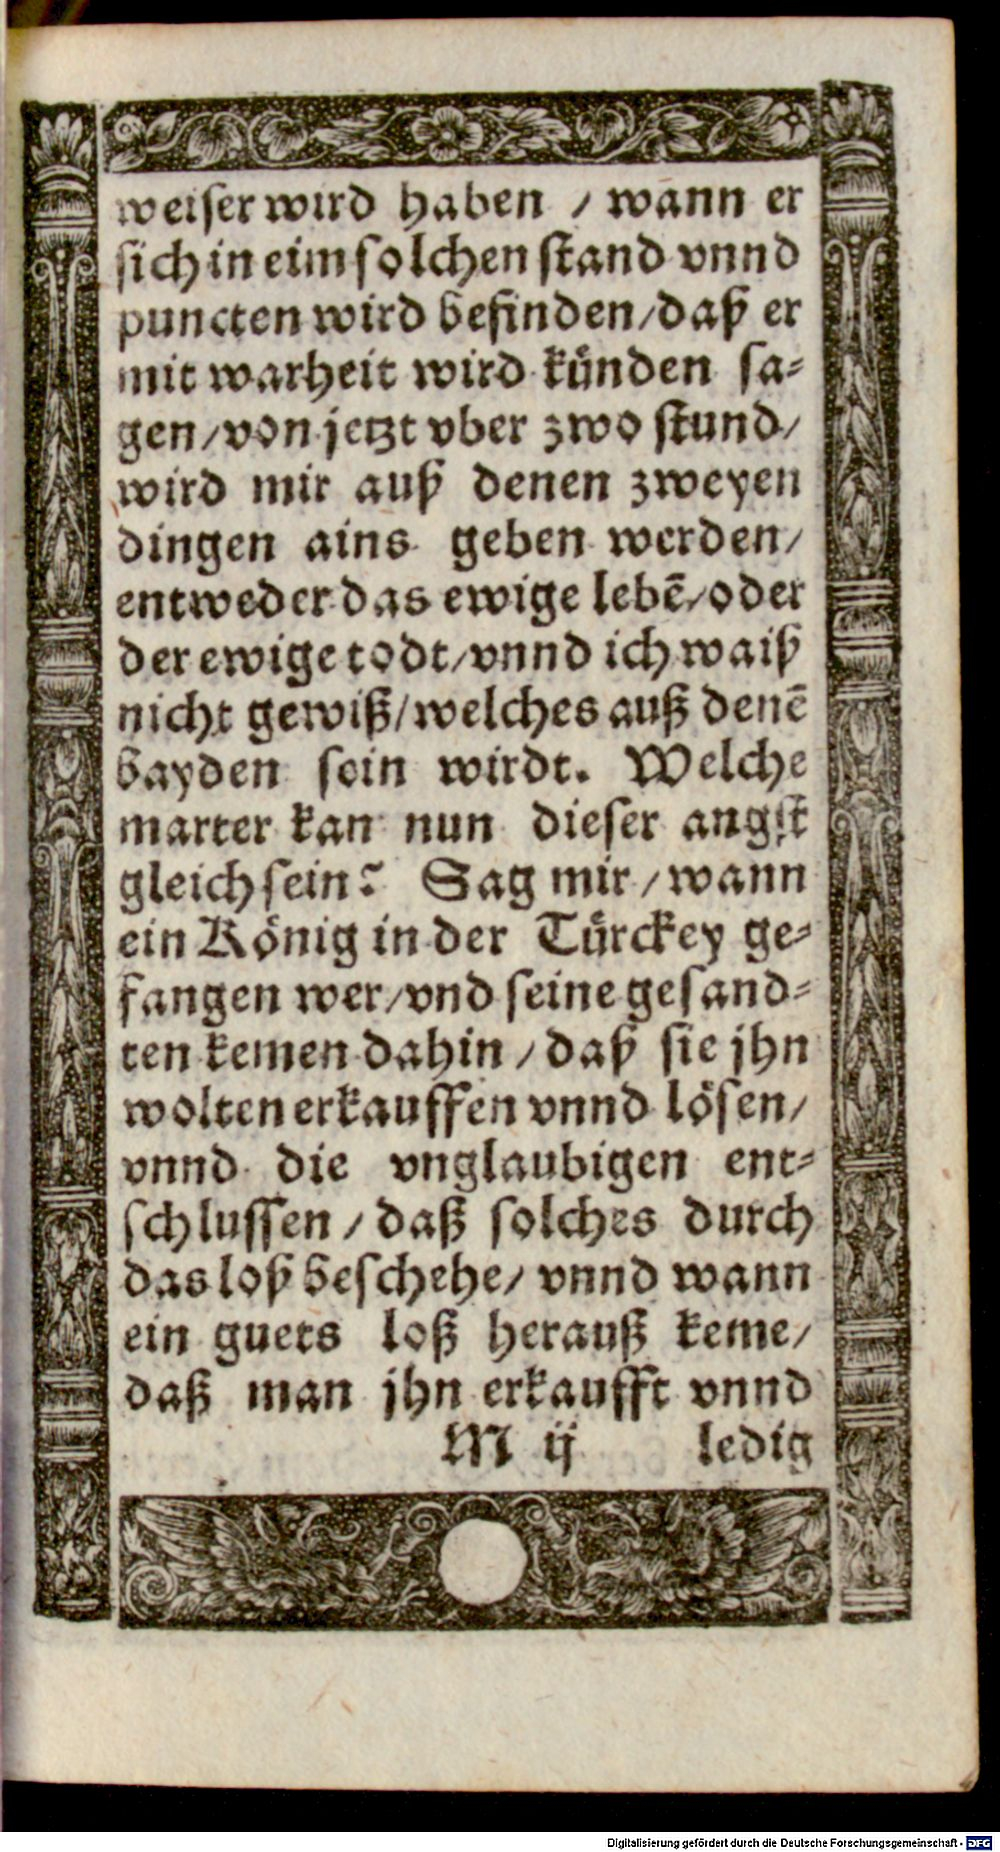 weiser wird haben / wann er
sich in eim solchen stand vnnd
puncten wird befinden/daß er
mit warheit wird kuͤnden sa⸗
gen/von jetzt vber zwo stund/
wird mir auß denen zweyen
dingen ains geben werden/
entweder das ewige lebē/oder
der ewige todt/vnnd ich waiß
nicht gewiß/welches auß denē
bayden sein wirdt. Welche
marter kan nun dieser angst
gleich sein? Sag mir/wann
ein Koͤnig in der Tuͤrckey ge⸗
fangen wer/vnd seine gesand⸗
ten kemen dahin / daß sie jhn
wolten erkauffen vnnd loͤsen/
vnnd die vnglaubigen ent⸗
schlussen / daß solches durch
das loß beschehe/ vnnd wann
ein guets loß herauß keme/
daß man jhn erkaufft vnnd
M ij ledig
Digitalisierung gefördert durch die Deutsche Forschungsgemeinschaft - DFG